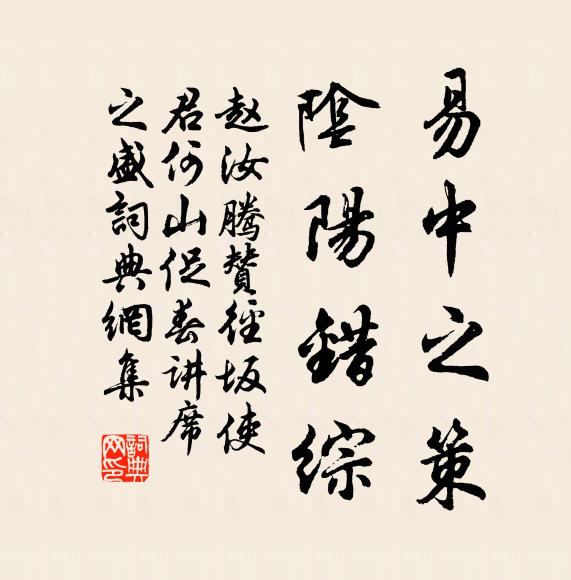 易中之策
陰陽錯綜
赵汝騰贊徑坂使
君何山促春讲席
之盛詞典網集
詞典網印